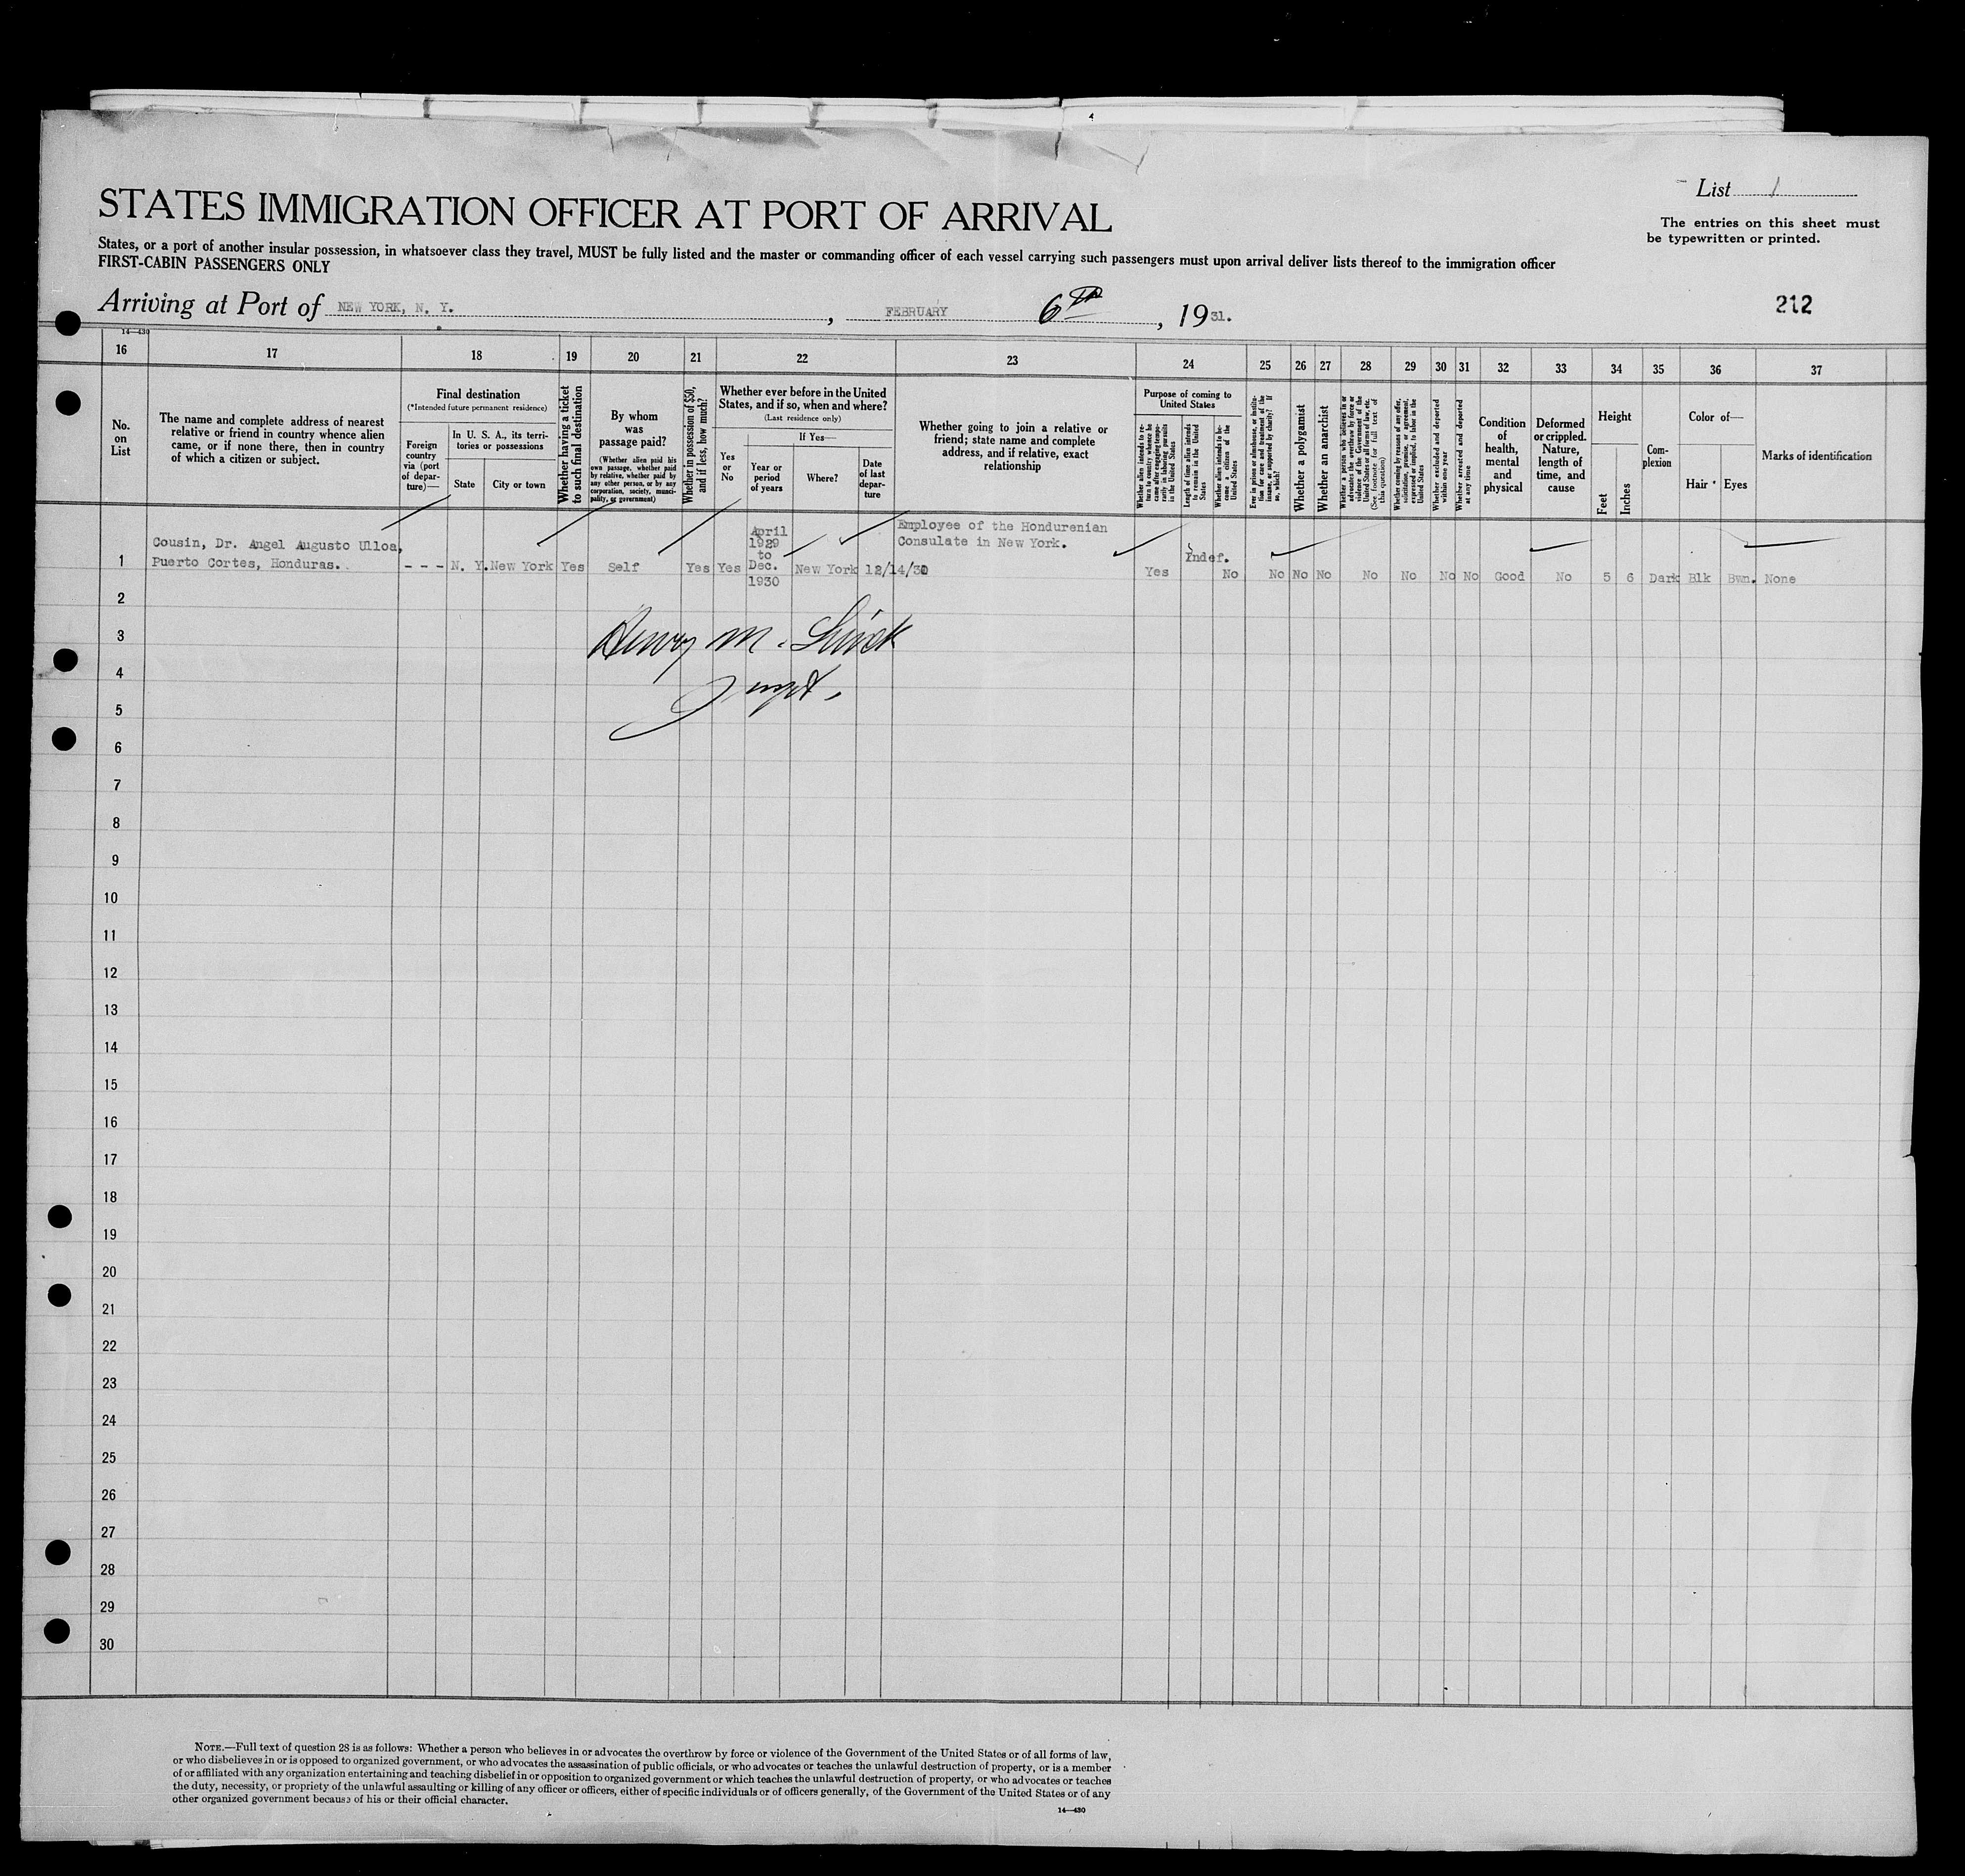 List 1
STATES IMMIGRATION OFFICER AT PORT OF ARRIVAL
The entries on this sheet must
be typewritten or printed.
States, or a port of another insular possession, in whatsoever class they travel, MUST be fully listed and the master or commanding officer of each vessel carrying such passengers must upon arrival deliver lists thereof to the immigration officer
FIRST-CABIN PASSENGERS ONLY
Arriving at Port of NEW YORK, N. Y. , FEBRUARY 6TH , 1931.
212
14—430
16 17 18 19 20 21 22 23 24 25 26 27 28 29 30 31 32 33 34 35 36 37
No.
on
List
The name and complete address of nearest
relative or friend in country whence alien
came, or if none there, then in country
of which a citizen or subject.
Final destination
(*Intended future permanent residence)
Foreign
country
via (port
of depar-
ture)—
In U. S. A., its terri-
tories or possessions
State
City or town
Whether having a ticket
to such final destination
By whom
was
passage paid?
(Whether alien paid his
own passage, whether paid
by relative, whether paid by
any other person, or by any
corporation, society, munici-
pality, or government)
Whether in possession of $50,
and if less, how much?
Whether ever before in the United
States, and if so, when and where?
(Last residence only)
Yes
or
No
If Yes—
Year or
period
of years
Where?
Date
of last
depar-
ture
Whether going to join a relative or
friend; state name and complete
address, and if relative, exact
relationship
Purpose of coming to
United States
Whether alien intends to re-
turn to country whence he
came after engaging tempo-
rarily in laboring pursuits
in the United States
Length of time alien intends
to remain in the United
States
Whether alien intends to be-
come a citizen of the
United States
Ever in prison or almshouse, or institu-
tion for care and treatment of the
insane, or supported by charity? If
so, which?
Whether a polygamist
Whether an anarchist
Whether a person who believes in or
advocates the overthrow by force or
violence of the Government of the
United States or all forms of law, etc.
(See footnote for full text of
this question)
Whether coming by reasons of any offer,
solicitation, promise, or agreement,
expressed or implied, to labor in the
United States
Whether excluded and deported
within one year
Whether arrested and deported
at any time
Condition
of
health,
mental
and
physical
Deformed
or crippled.
Nature,
length of
time, and
cause
Height
Feet
Inches
Com-
plexion
Color of—
Hair
Eyes
Marks of identification
1
Cousin, Dr. Angel Augusto Ulloa,
Puerto Cortes, Honduras.
- - - N. Y. New York Yes Self Yes Yes
April
1929
to
Dec.
1930
New York 12/14/30
Employee of the Hondurenian
Consulate in New York.
Yes Indef. No No No No No No No No Good No 5 6 Dark Blk Bwn. None
2
3
4
5
6
7
8
9
10
11
12
13
14
15
16
17
18
19
20
21
22
23
24
25
26
27
28
29
30
Henry M.
NOTE.—Full text of question 28 is as follows: Whether a person who believes in or advocates the overthrow by force or violence of the Government of the United States or of all forms of law,
or who disbelieves in or is opposed to organized government, or who advocates the assassination of public officials, or who advocates or teaches the unlawful destruction of property, or is a member
of or affiliated with any organization entertaining and teaching disbelief in or opposition to organized government or which teaches the unlawful destruction of property, or who advocates or teaches
the duty, necessity, or propriety of the unlawful assaulting or killing of any officer or officers, either of specific individuals or of officers generally, of the Government of the United States or of any
other organized government because of his or their official character.
14—430